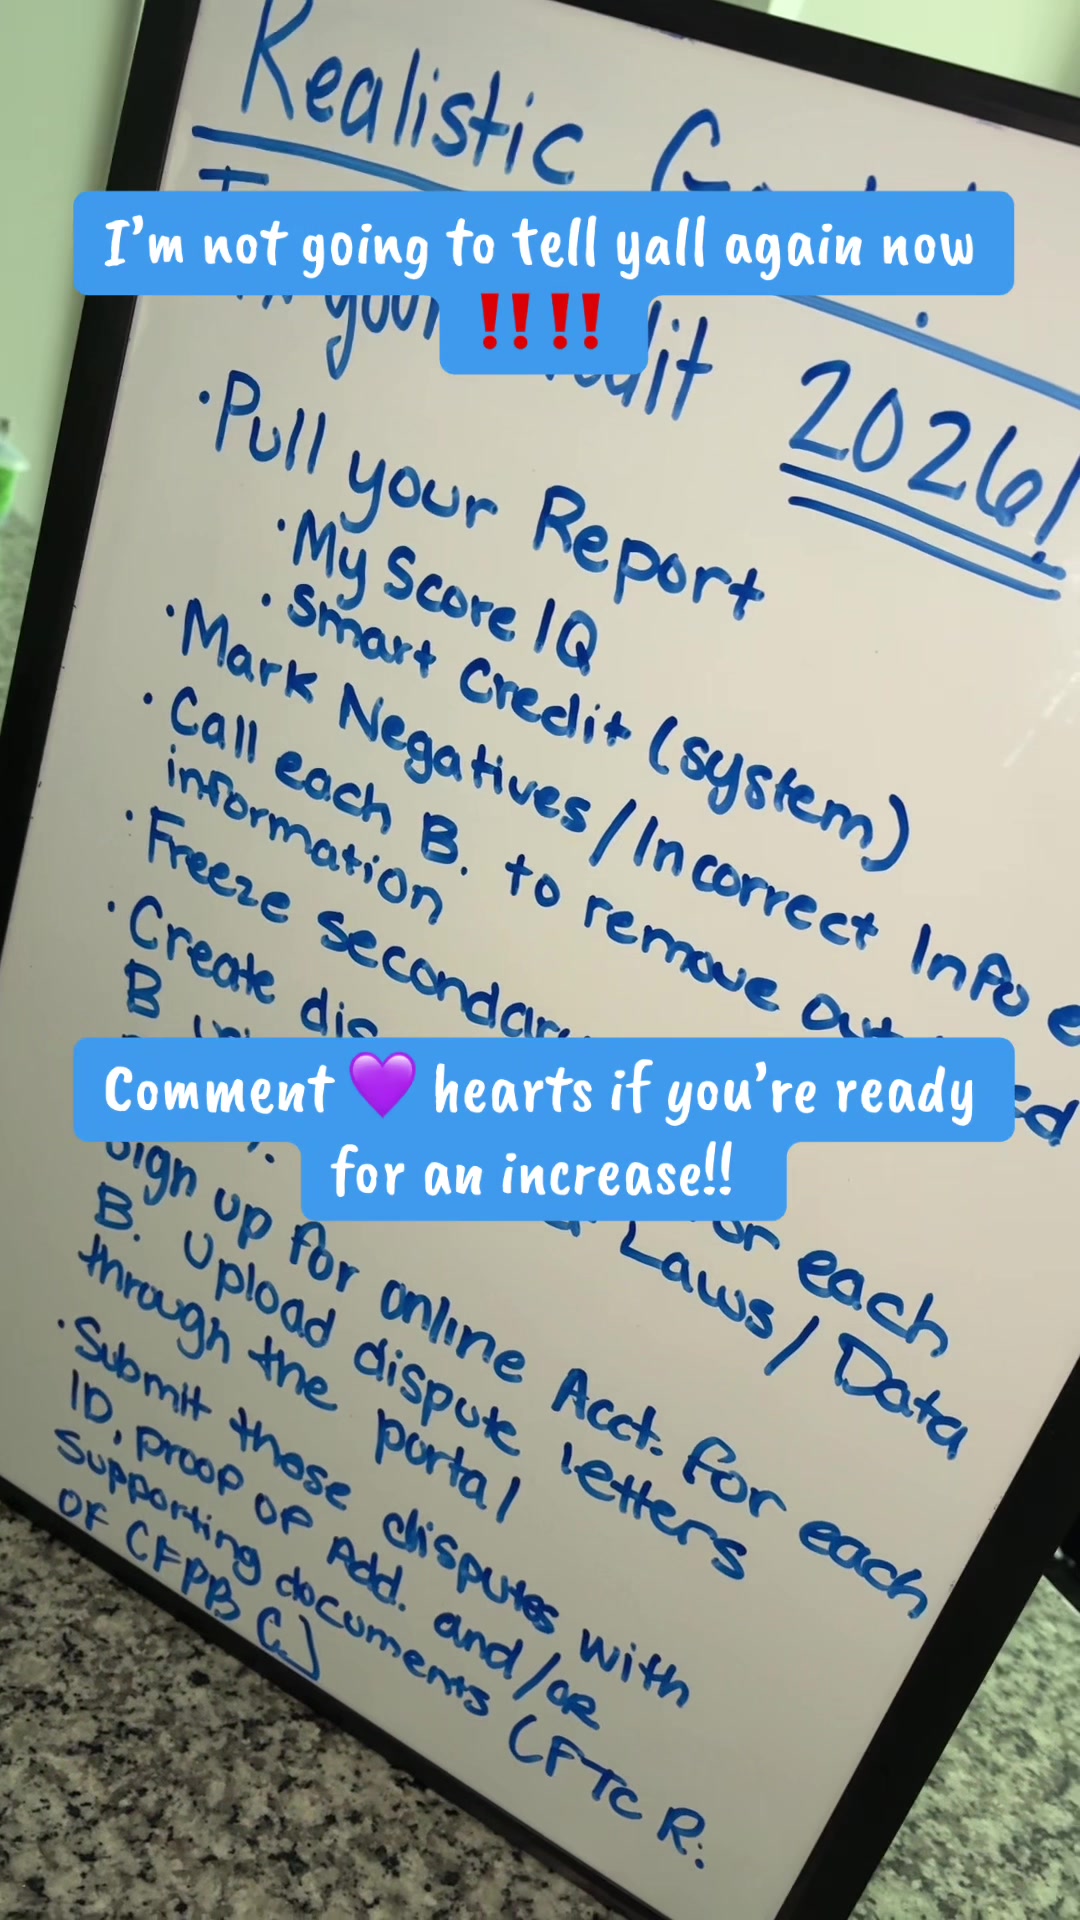 Realistic
I'm not going to tell yall again now
‼️‼️
2026!
• Pull your Report
• My Score IQ
• Smart Credit (system)
• Mark Negatives/Incorrect Info
• Call each B. to remove
information
• Freeze
• Create
B
Comment 💜 hearts if you're ready
for an increase!!
for each
Laws / Data
Sign up for online Acct. for each
B. Upload dispute letters
through the portal
• Submit these disputes with
ID, Proof of Add. and/or
supporting documents (FTC R.
or CFPB C.)